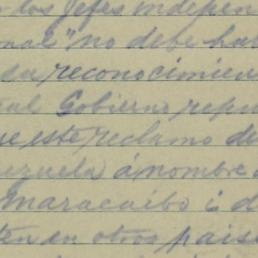 los Jefes indepen
onal" no debe hab
da reconocimien
al Gobierno repu
ue este reclamo de
zuela á nombre
Maracaibo i d
ten en otros paise